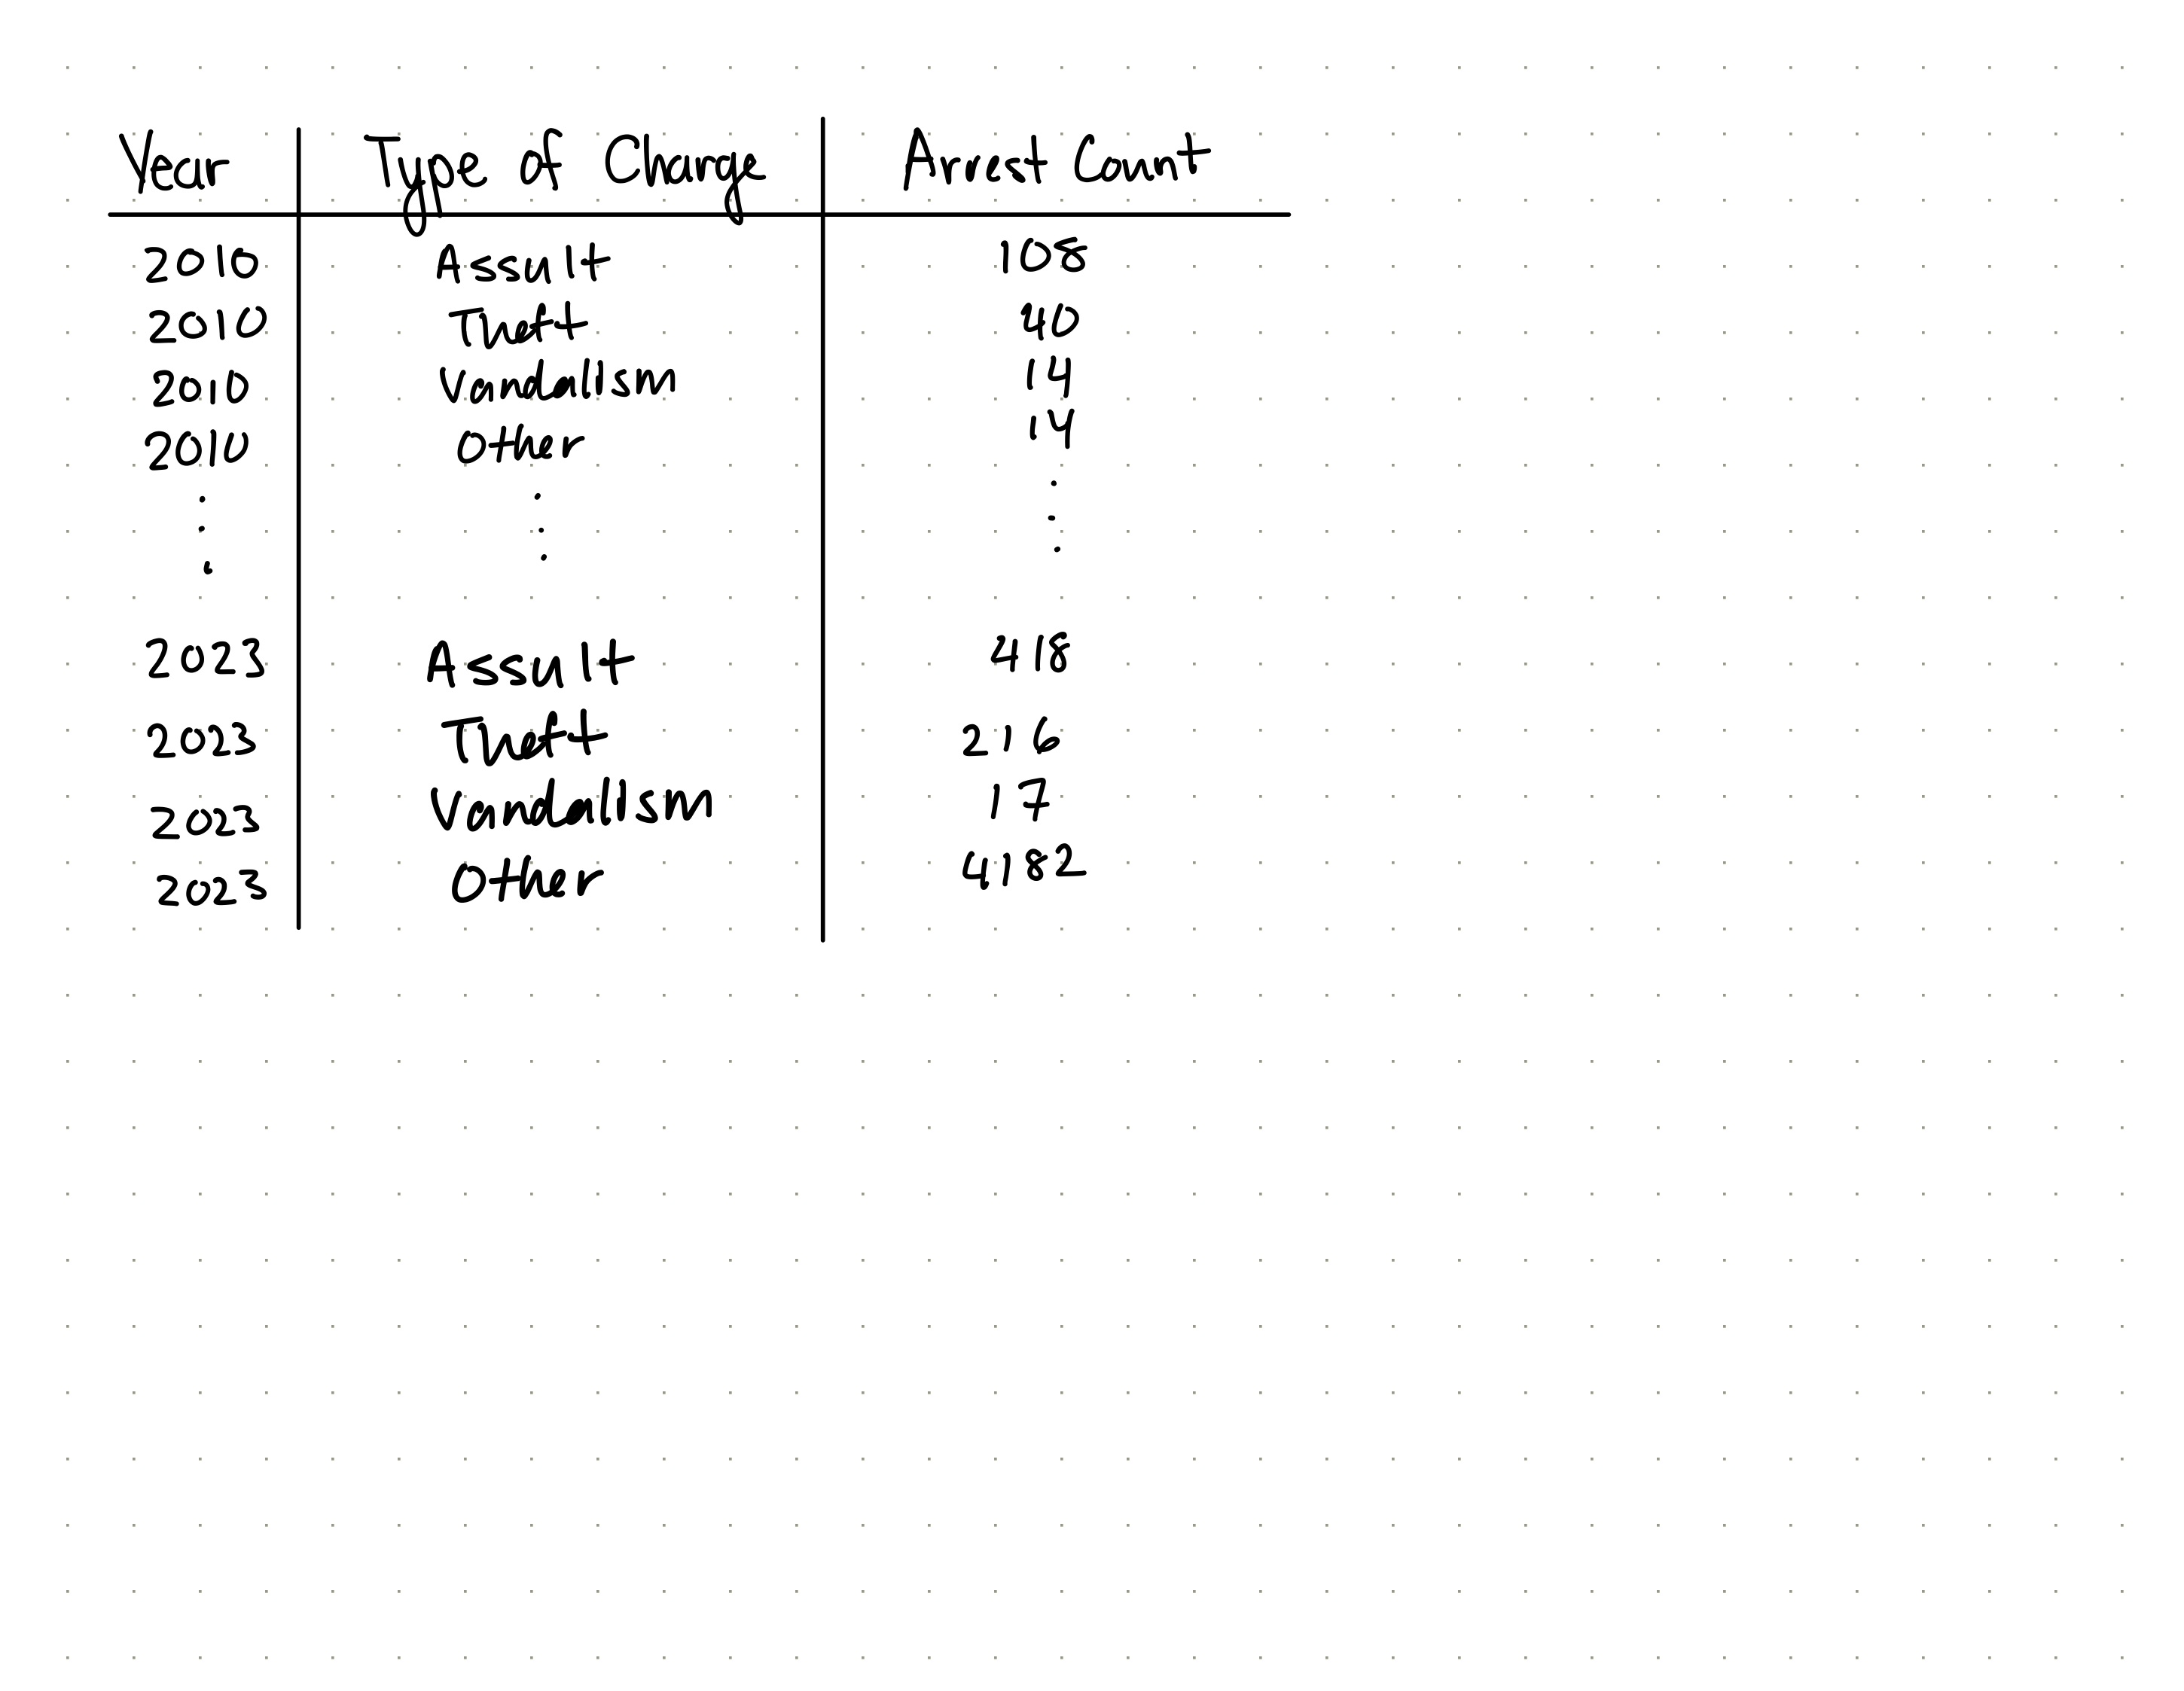 Year Type of Charge Arrest Count
2010 Assult 108
2010 Theft 40
2010 Vandalism 14
2010 Other 14
. . .
. . .
. . .
2023 Assult 418
2023 Theft 216
2023 Vandalism 17
2023 Other 4182